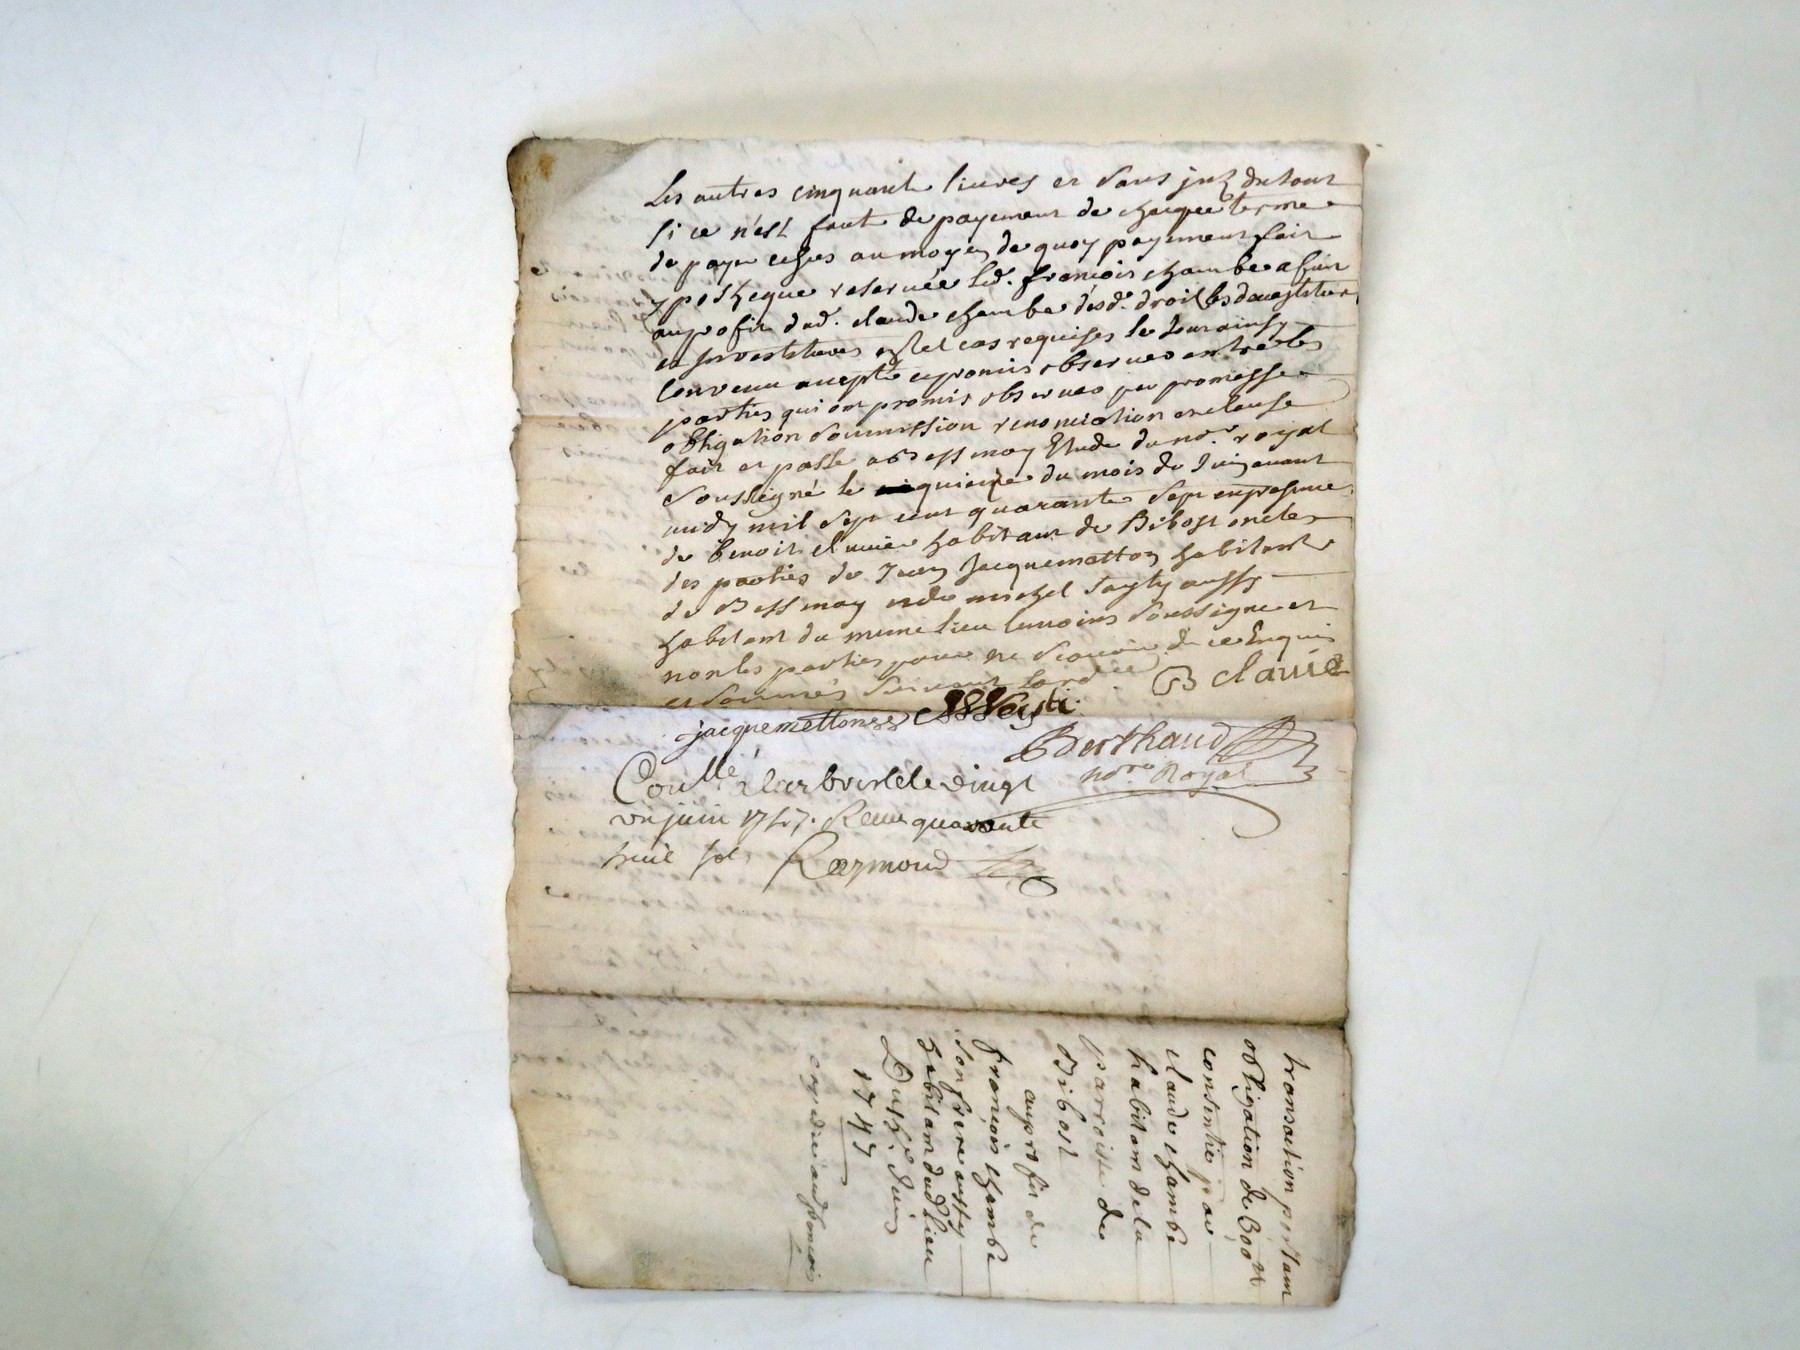 Les autres cinquante livres et sans jnt du tout
si ce n'est faute de payement de chaque terme
de payer echus au moyen de quoy payement fait
ypotheque reservée led. francois chambe a fait
au profit dud. claude chambe desd. droit les devestitures
et jnvestitures est et cas requises le tout ainsy
convenu accepté et promis observer entre les
parties qui ont promis observer par promesse
obligation soumission renonciation et clause
fait et passé a Bessenay Etude du nore royal
soussigné le quinze du mois de Juin avant
midy mil sept cent quarante sept en presence
de benoit claviere habitant de Bibost oncle
des parties de Jean Jacquemetton habitant
de Bessenay et de michel aussy
habitant du meme lieu temoins soussigne et
non les parties pour ne scavoir de ce Enquis
et sommés suivant lord.ce B claviere
jacquemetton
Berthaud
nore Royal
Conllé a larbresle le vingt
un juin 1747. Receu quarante
huit sols Raymond
transaction portant
obligation de
consentie par
claude chambe
habitant de la
parroisse de
Bibost
au profit de
francois chambe
son frere aussy
habitant dud. lieu
Du 15e Juin
1747
expediée aud francois